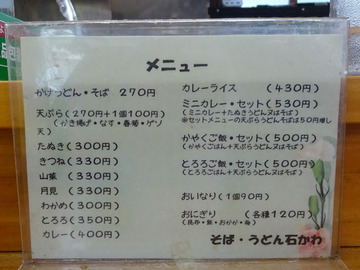 メニュー
かけうどん・そば 270円
天ぷら(270円+1個100円)
(かき揚げ・なす・春菊・ゲソ
天)
たぬき(300円)
きつね(330円)
山菜 (330円)
月見 (330円)
わかめ(300円)
とろろ(350円)
カレー(400円)
カレーライス (430円)
ミニカレー・セット(530円)
(ミニカレー+たぬきうどん又はそば)
※セットメニューの天ぷらうどんそばは50円増し
かやくご飯・セット(500円)
(かやくごはん+天ぷらうどん又はそば)
とろろご飯・セット(500円)
(とろろごはん+天ぷらうどん又はそば)
おいなり(1個90円)
おにぎり (各種120円)
(昆布・鮭・おかか・梅)
そば・うどん石かわ